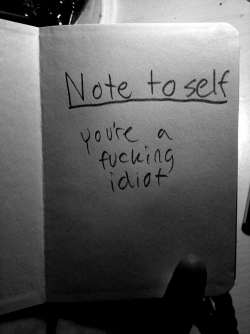 Note to self
you're a
fucking
idiot